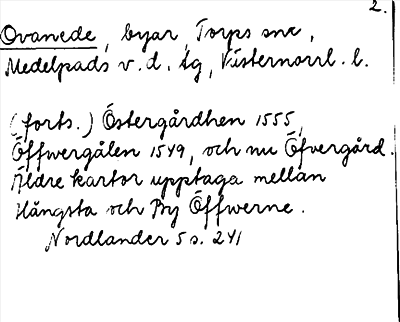 2.
Ovanede, byar, Torps snr,
Medelpads v. d. tg, Västernorrl. l.
(forts.) Östergårdhen 1555,
Öffwergålen 1549, och nu Öfvergård.
Äldre kartor upptaga mellan
Hångsta och By Öffwerne.
Nordlander 5 s. 241